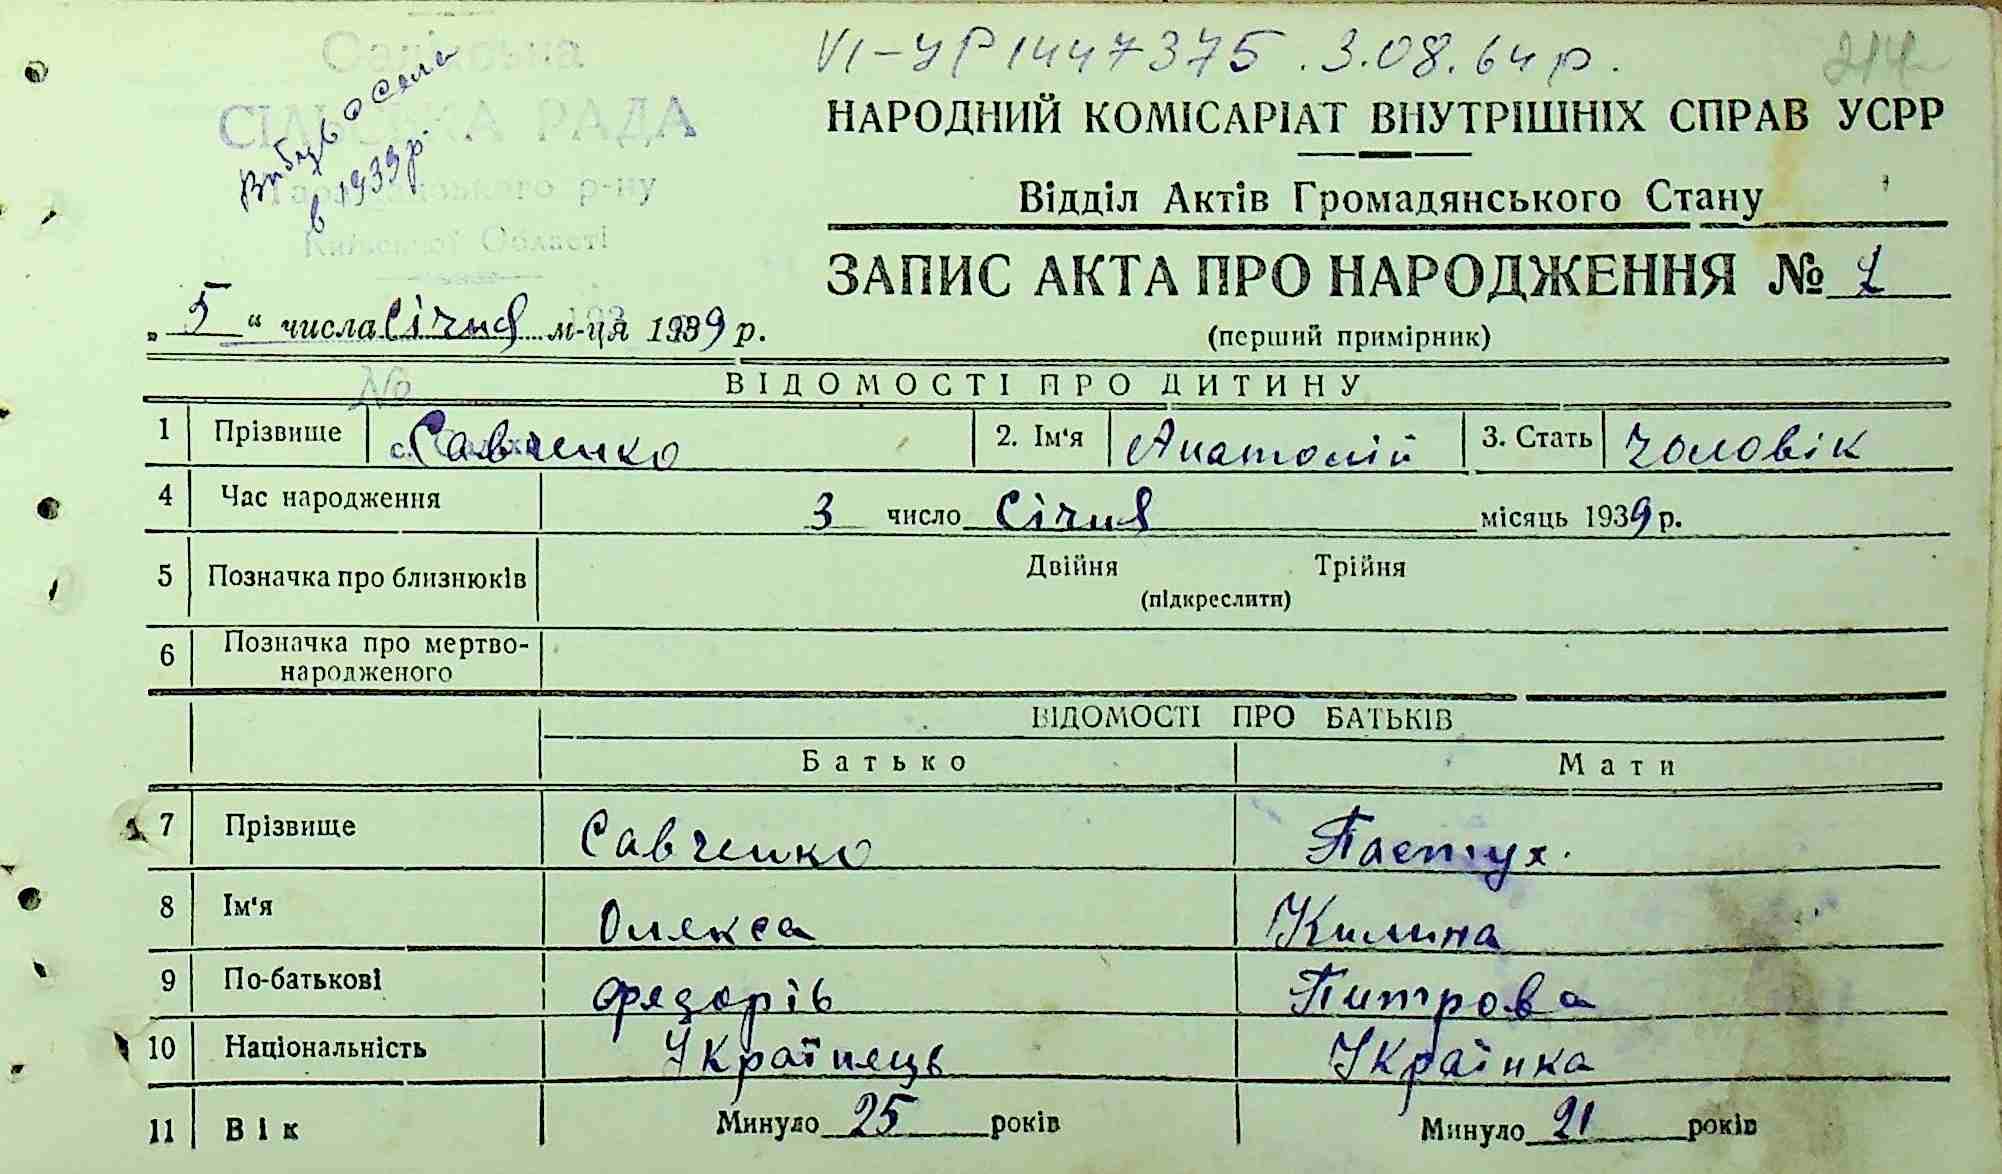 VI-УР 1447375. 3.08.64 р.
214
Вибув о села
в 1939 р.
СІЛЬСЬКА РАДА
р-ну
Київської Області
НАРОДНИЙ КОМІСАРІАТ ВНУТРІШНІХ СПРАВ УСРР
Відділ Актів Громадянського Стану
ЗАПИС АКТА ПРО НАРОДЖЕННЯ №
(перший примірник)
„5“ числа Січня м-ця 1939 р.
№
ВІДОМОСТІ ПРО ДИТИНУ
1 Прізвище Савченко 2. Ім'я Анатолій 3. Стать чоловік
4 Час народження 3 число Січня місяць 1939 р.
5 Позначка про близнюків Двійня Трійня
(підкреслити)
6 Позначка про мертво-
народженого
ВІДОМОСТІ ПРО БАТЬКІВ
Батько Мати
7 Прізвище Савченко Пастух.
8 Ім'я Олекса Килина
9 По-батькові Фядорів Питрова
10 Національність Українець Українка
11 Вік Минуло 25 років Минуло 21 років